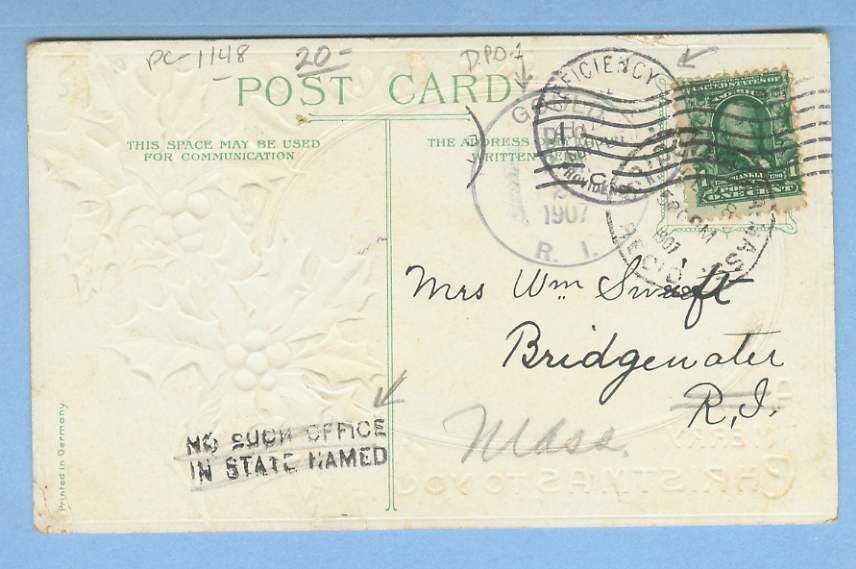 PC-1148 20- DPO-1
POST CARD
THIS SPACE MAY BE USED
FOR COMMUNICATION
THE ADDRESS
WRITTEN
EFFICIENCY
PROVIDENCE
UNITED STATES OF
AMERICA
FRANKLIN
ONE CENT
1907
R. I.
MASS.
1907
REC'D.
Mrs Wm Swift
Bridgewater
R,I.
Mass.
NO SUCH OFFICE
IN STATE NAMED
CHRISTMAS TO YOU
Printed in Germany